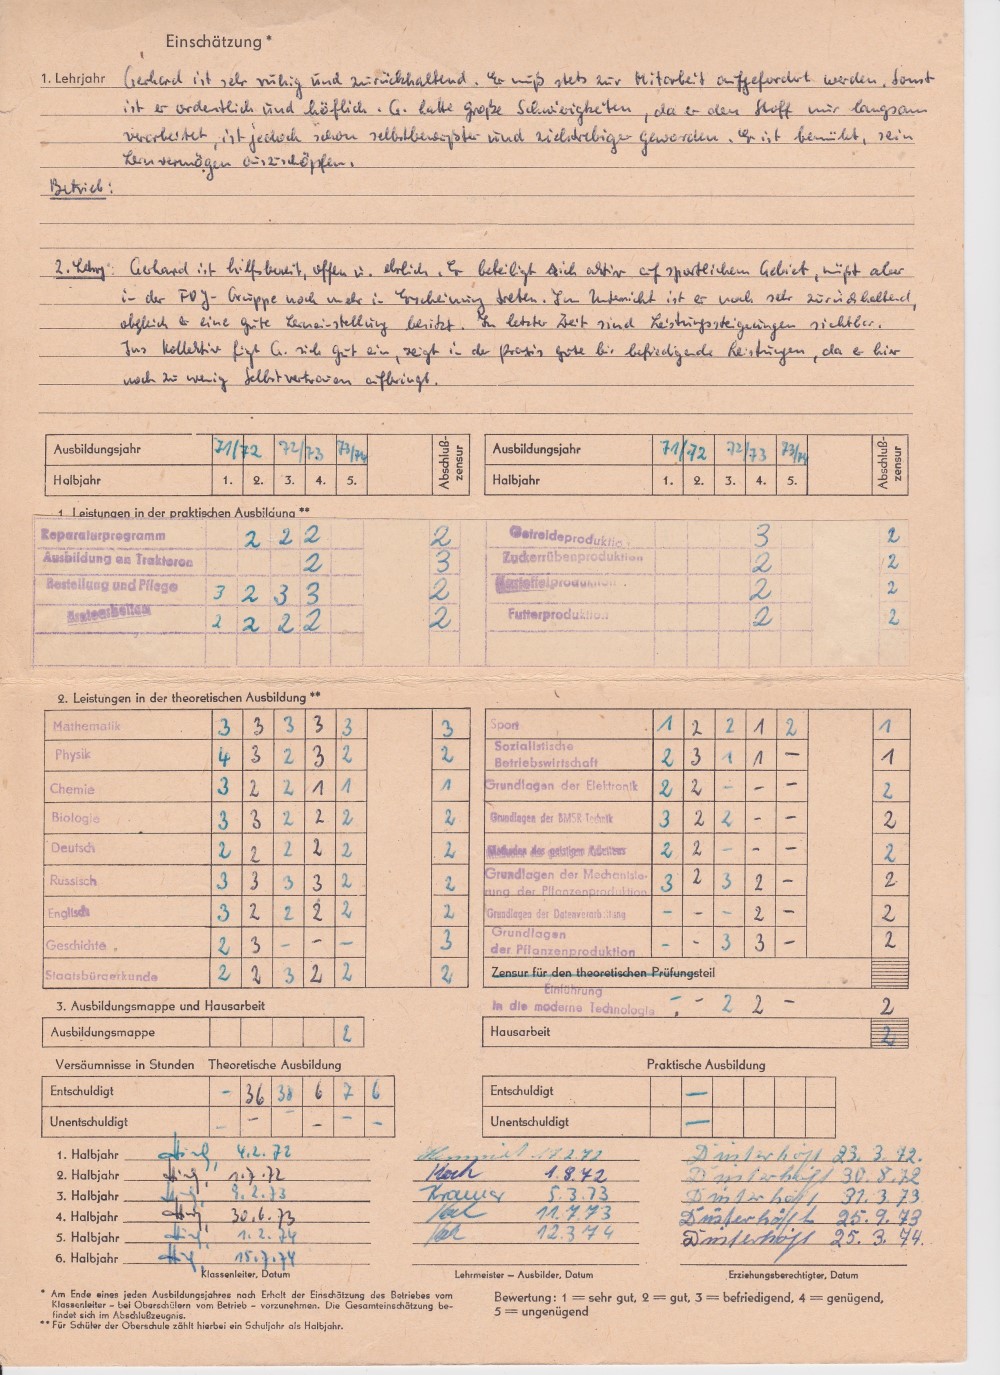 Einschätzung *
1. Lehrjahr Gerhard ist sehr ruhig und zurückhaltend. Er muß stets zur Mitarbeit aufgefordert werden. Sonst
ist er ordentlich und höflich. G. hatte große Schwierigkeiten, da er den Stoff nur langsam
verarbeitet, ist jedoch schon selbstbewußter und zielstrebiger geworden. Er ist bemüht, sein
Lernvermögen auszuschöpfen.
Betrieb:
2. Lehrj: Gerhard ist hilfsbereit, offen u. ehrlich. Er beteiligt sich aktiv auf sportlichem Gebiet, müßt aber
in der FDJ-Gruppe noch mehr in Erscheinung treten. Im Unterricht ist er noch sehr zurückhaltend,
obgleich er eine gute Lerneinstellung besitzt. In letzter Zeit sind Leistungssteigerungen sichtbar.
Ins Kollektiv fügt G. sich gut ein, zeigt in der Praxis gute bis befriedigende Leistungen, da er hier
noch zu wenig Selbstvertrauen aufbringt.
Ausbildungsjahr 71/72 72/73 73/74 Abschluß-zensur Ausbildungsjahr 71/72 72/73 73/74 Abschluß-zensur
Halbjahr 1. 2. 3. 4. 5. Halbjahr 1. 2. 3. 4. 5.
1. Leistungen in der praktischen Ausbildung **
Reparaturprogramm 2 2 2 2 Getreideproduktion 3 2
Ausbildung an Traktoren 2 3 Zuckerrübenproduktion 2 2
Bestellung und Pflege 3 2 3 3 2 Kartoffelproduktion 2 2
Erntearbeiten 2 2 2 2 2 Futterproduktion 2 2
2. Leistungen in der theoretischen Ausbildung **
Mathematik 3 3 3 3 3 3 Sport 1 2 2 1 2 1
Physik 4 3 2 3 2 2 Sozialistische Betriebswirtschaft 2 3 1 1 – 1
Chemie 3 2 2 1 1 1 Grundlagen der Elektronik 2 2 – – – 2
Biologie 3 3 2 2 2 2 Grundlagen der BMSR-Technik 3 2 2 – – 2
Deutsch 2 2 2 2 2 2 Methoden der geistigen Arbeit 2 2 – – – 2
Russisch 3 3 3 3 2 2 Grundlagen der Mechanisie-rung der Pflanzenproduktion 3 2 3 2 – 2
Englisch 3 2 2 2 2 2 Grundlagen der Datenverarbeitung – – – 2 – 2
Geschichte 2 3 – – – 3 Grundlagen der Pflanzenproduktion – – 3 3 – 2
Staatsbürgerkunde 2 2 3 2 2 2 Zensur für den theoretischen Prüfungsteil
Einführung
3. Ausbildungsmappe und Hausarbeit in die moderne Technologie – – 2 2 – 2
Ausbildungsmappe 2 Hausarbeit 2
Versäumnisse in Stunden Theoretische Ausbildung Praktische Ausbildung
Entschuldigt – 36 38 6 7 6 Entschuldigt –
Unentschuldigt – – – – – – Unentschuldigt –
1. Halbjahr 4.2.72 Düsterhöft 23.3.72.
2. Halbjahr 1.7.72 Koch 1.8.72 Düsterhöft 30.8.72
3. Halbjahr 9.2.73 Kramer 5.3.73 Düsterhöft 31.3.73
4. Halbjahr 30.6.73 11.7.73 Düsterhöft 25.9.73
5. Halbjahr 1.2.74 12.3.74 Düsterhöft 25.3.74.
6. Halbjahr 15.7.74
Klassenleiter, Datum Lehrmeister – Ausbilder, Datum Erziehungsberechtigter, Datum
* Am Ende eines jeden Ausbildungsjahres nach Erhalt der Einschätzung des Betriebes vom
Klassenleiter – bei Oberschülern vom Betrieb – vorzunehmen. Die Gesamteinschätzung be-
findet sich im Abschlußzeugnis.
** Für Schüler der Oberschule zählt hierbei ein Schuljahr als Halbjahr.
Bewertung: 1 = sehr gut, 2 = gut, 3 = befriedigend, 4 = genügend,
5 = ungenügend